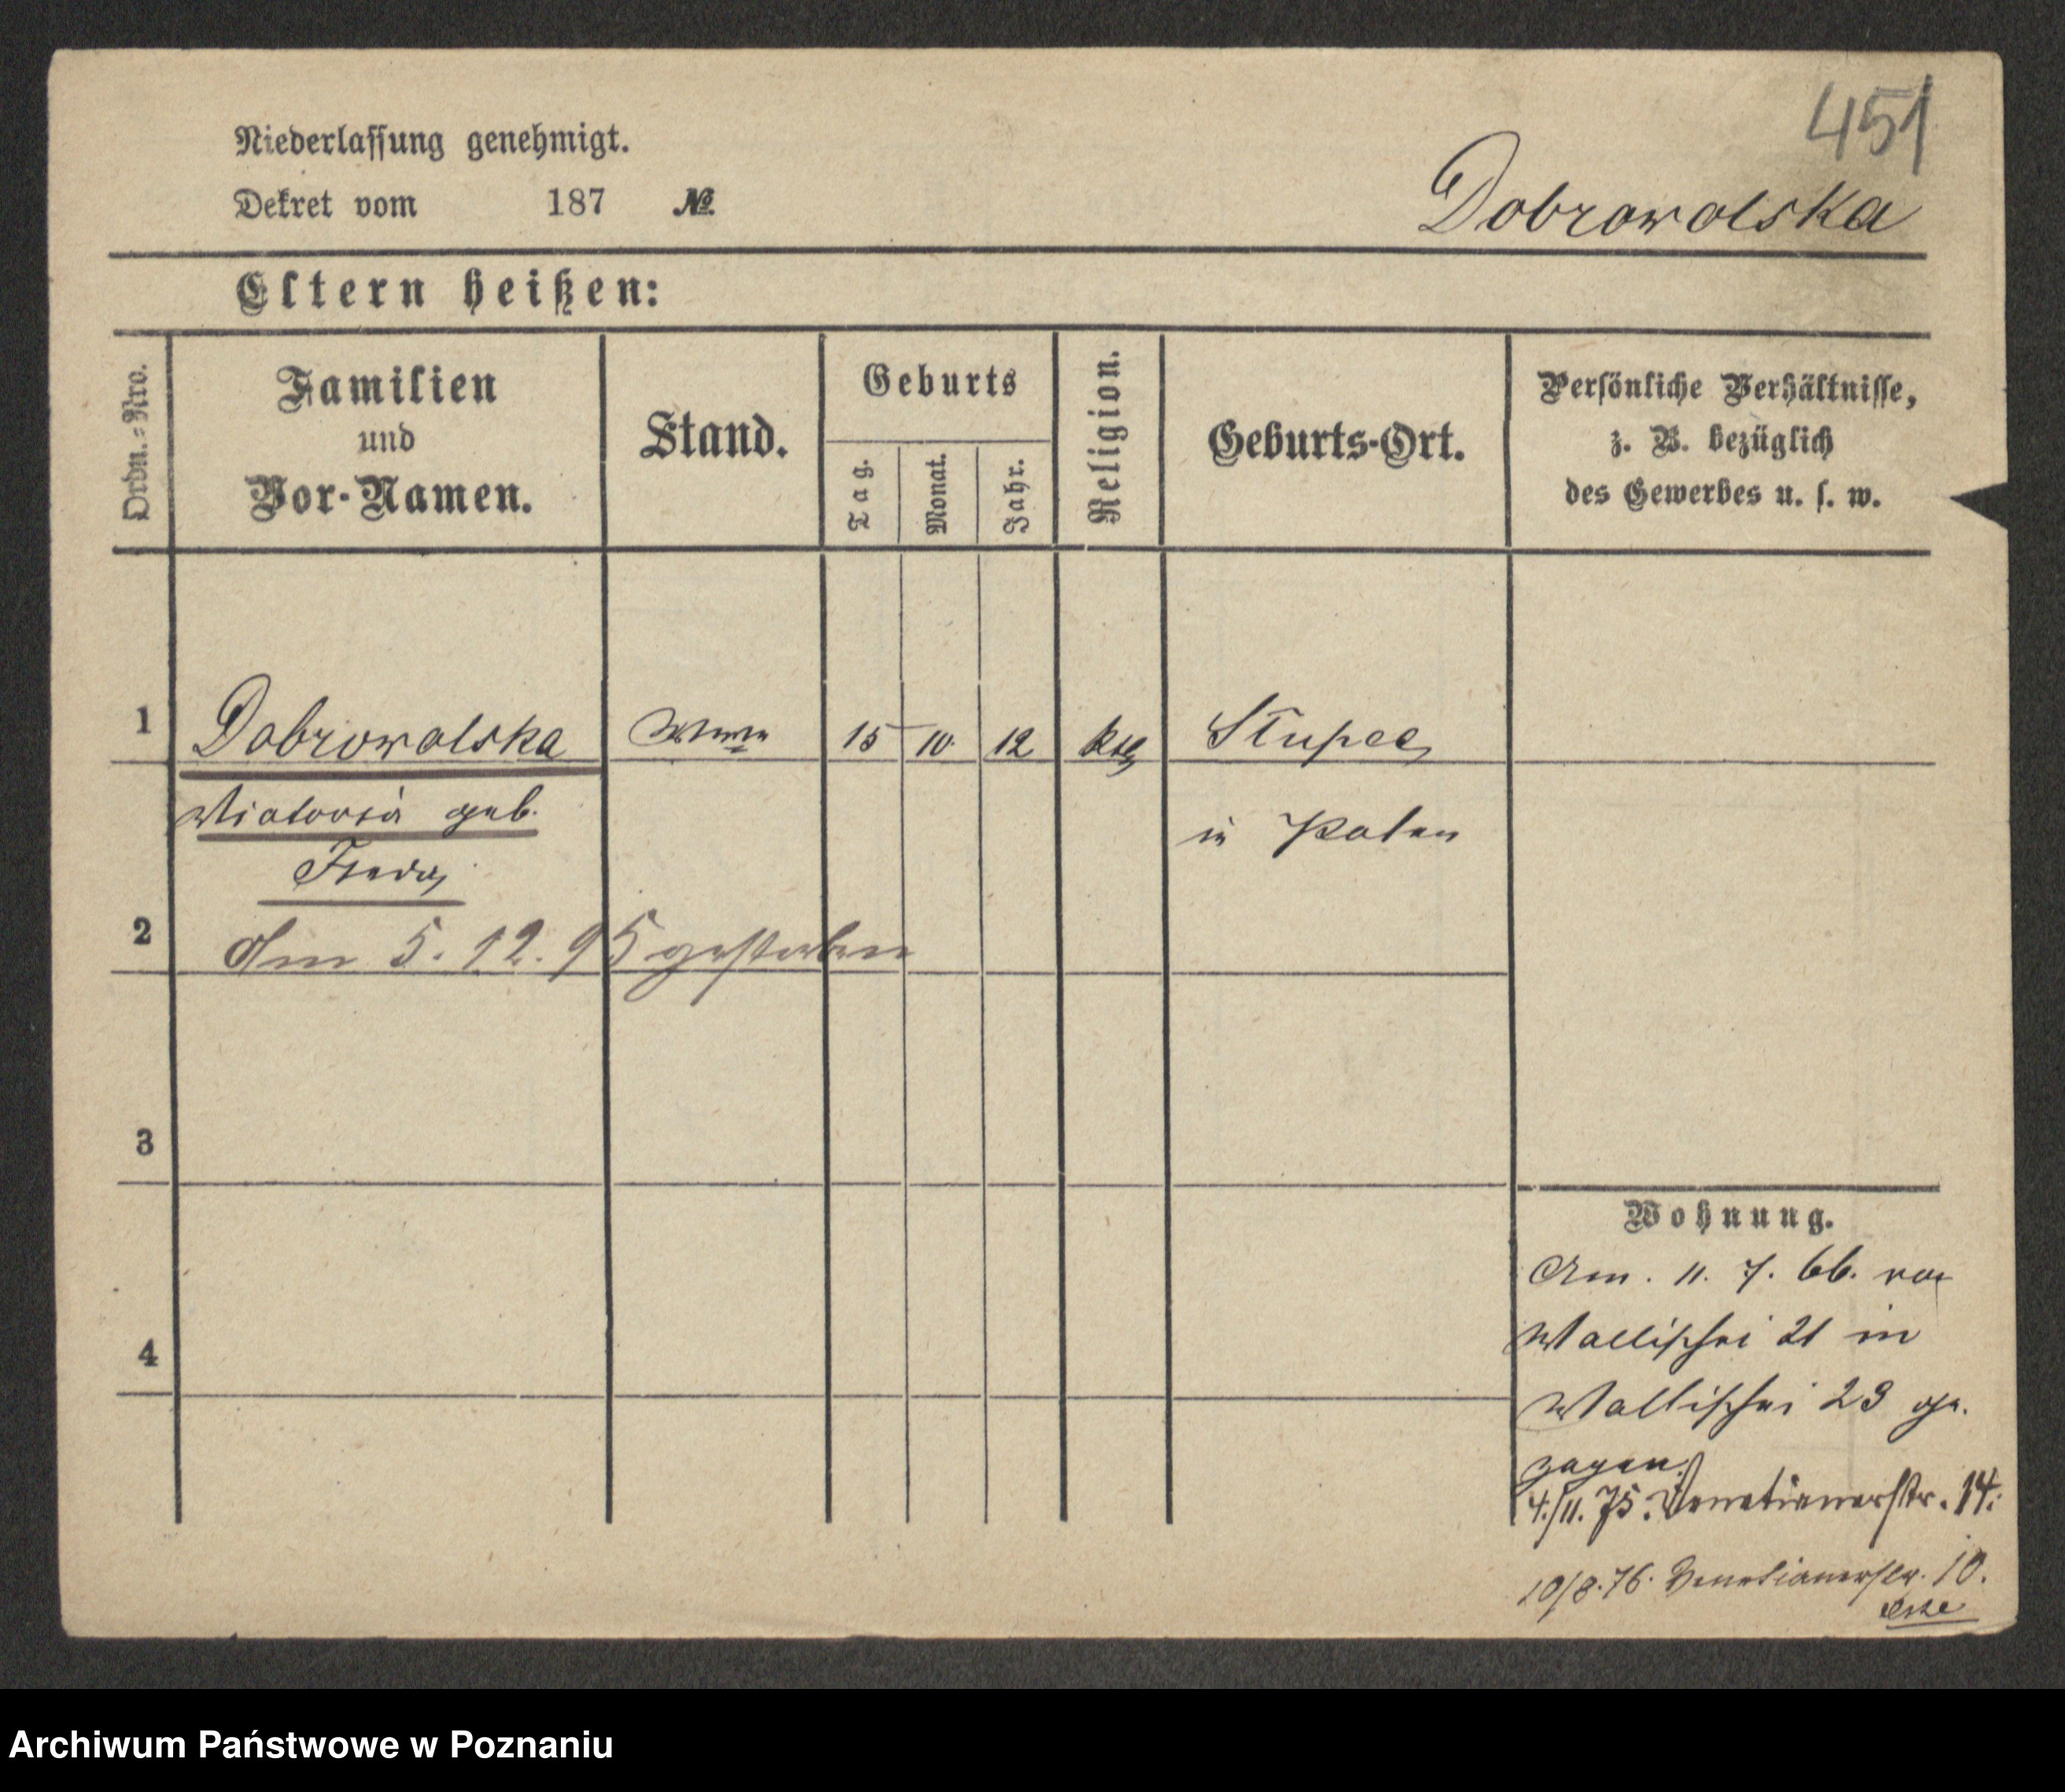 451
Niederlassung genehmigt.
Dekret vom 187 №
Dobrowolska
Eltern heißen:
Ordn.-Nro.
Familien und Vor-Namen.
Stand.
Geburts
Tag.
Monat.
Jahr.
Religion.
Geburts-Ort.
Persönliche Verhältnisse, z. B. bezüglich des Gewerbes u. s. w.
1 Dobrowolska 15 10. 12 kth Slupce
Victoria geb. in Polen
2 Am 5. 12. 95 gestorben
3
4
Wohnung.
Am. 11. 7. 66. von
Wallischei 21 in
Wallischei 23 ge-
zogen.
4./11. 75. Venetianerstr. 14.
10/8. 76. Venetianerstr. 10.